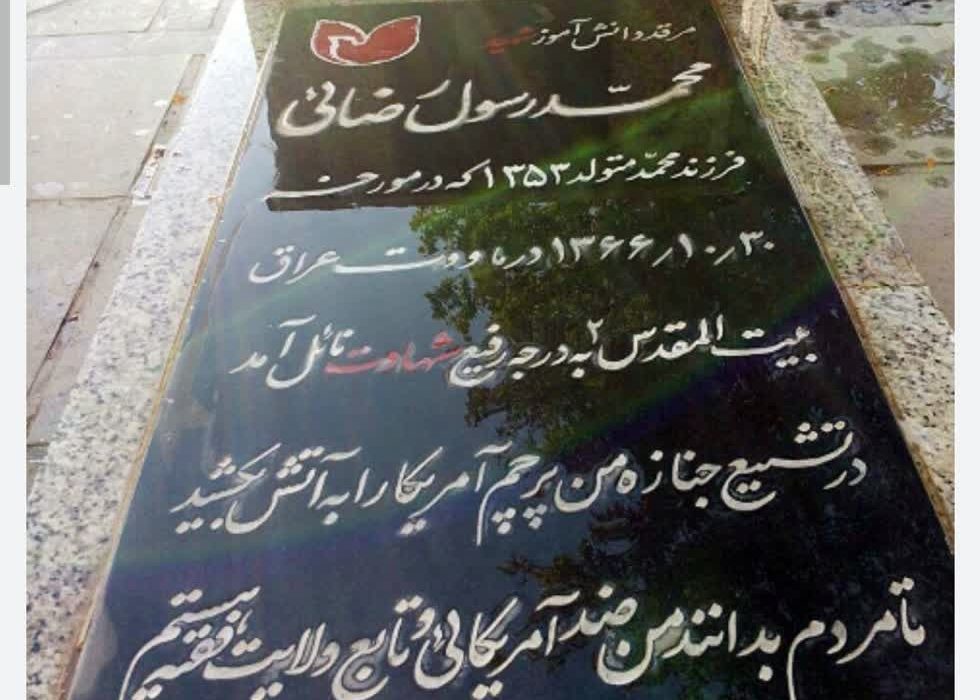 مرقد دانش آموز شهید
محمد رسول رضائی
فرزند محمد متولد ۱۳۵۳ که در مورخه
۱۳۶۶/۱۰/۳۰ در ماووت عراق
بیت المقدس ۲ به درجه رفیع شهادت نائل آمد
در تشییع جنازه من پرچم آمریکا را به آتش بکشید
تا مردم بدانند من ضد آمریکائی و تابع ولایت فقیه هستم